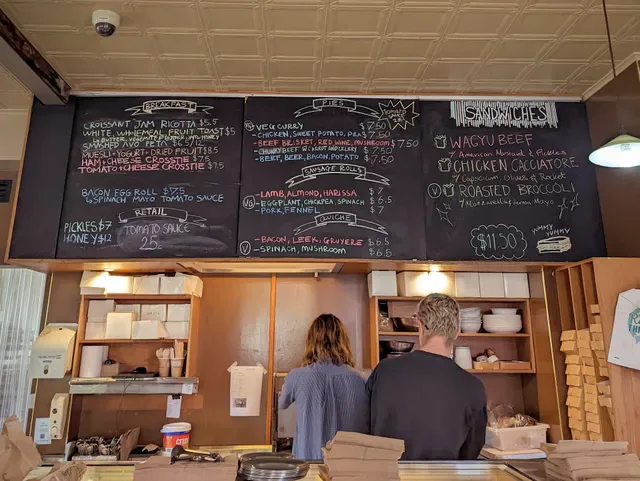 BREAKFAST
CROISSANT JAM RICOTTA $5.5
WHITE, WHOLEMEAL, FRUIT TOAST $5
SMASHED AVO FETA
MUESLI + YOGURT + DRIED FRUIT $8.5
HAM + CHEESE CROSSTIE $7.5
TOMATO + CHEESE CROSSTIE $7.5
BACON EGG ROLL
SPINACH MAYO TOMATO SAUCE
RETAIL
PICKLES $7
HONEY $12
TOMATO SAUCE
25
PIES
TOMATO SAUCE
VG VEG CURRY $7.50
- CHICKEN, SWEET POTATO, PEAS 7.50
- BEEF BRISKET, RED WINE, MUSHROOM $7.50
- CHUNKY BEEF W. CARROT AND CELERY $7.50
- BEEF, BEER, BACON, POTATO $7.50
SAUSAGE ROLLS
- LAMB, ALMOND, HARISSA $7
VG - EGGPLANT, CHICKPEA, SPINACH $7
- PORK, FENNEL $7
QUICHE
- BACON, LEEK, GRUYERE $6.5
V - SPINACH, MUSHROOM $6.5
SANDWICHES
WAGYU BEEF
w/ American Mustard & Pickles
CHICKEN CACCIATORE
w/ Capsicum, Olives & Rocket
V ROASTED BROCCOLI
w/ Mozzarella, Lemon Mayo
$11.50
YUMMY
YUMMY